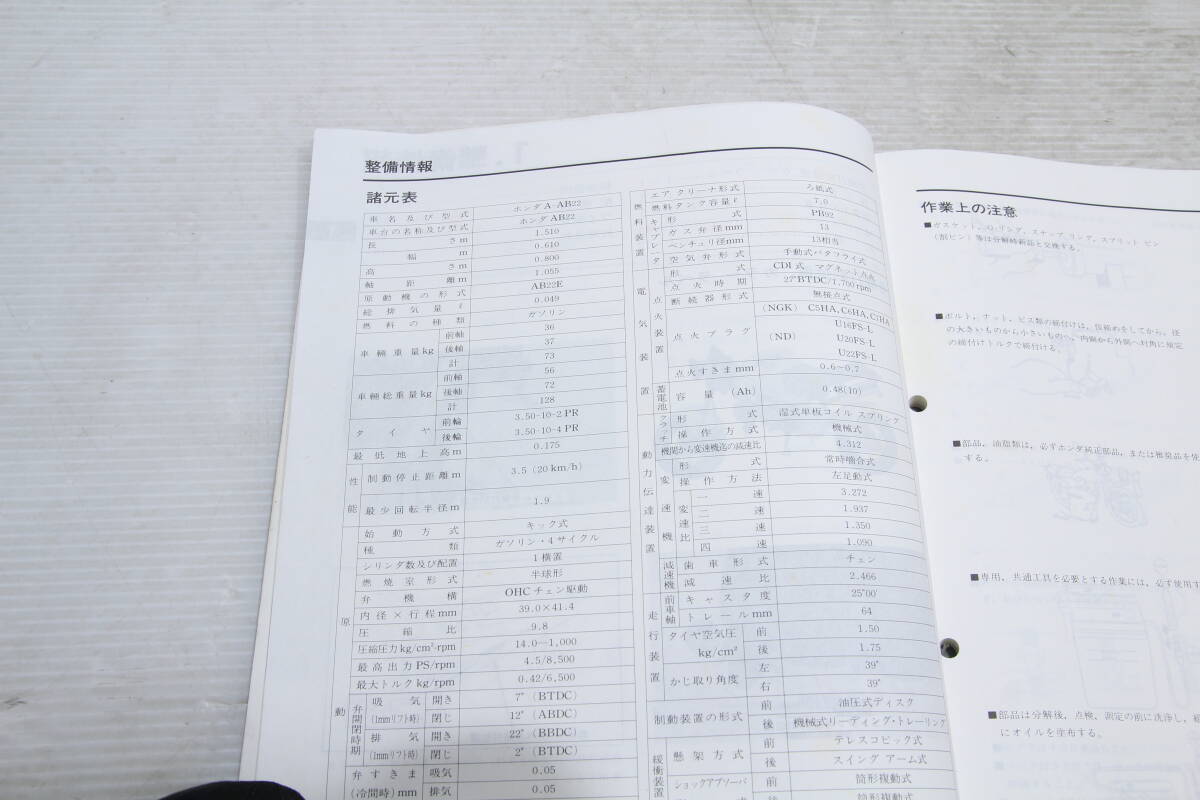 整備情報
諸元表
車名及び型式 ホンダA-AB22
車台の名称及び型式 ホンダAB22
長さm 1.510
幅m 0.610
高さm 0.800
軸距離m 1.055
原動機の形式 AB22E
総排気量ℓ 0.049
燃料の種類 ガソリン
車輛重量kg 前軸 36
後軸 37
計 73
車輛総重量kg 前軸 56
後軸 72
計 128
タイヤ 前輪 3.50-10-2PR
後輪 3.50-10-4PR
最低地上高m 0.175
性能 制動停止距離m 3.5 (20km/h)
最少回転半径m 1.9
原動
始動方式 キック式
種類 ガソリン・4サイクル
シリンダ数及び配置 1横置
燃焼室形式 半球形
弁機構 OHCチェン駆動
内径×行程mm 39.0×41.4
圧縮比 9.8
圧縮圧力kg/cm²-rpm 14.0—1,000
最高出力PS/rpm 4.5/8,500
最大トルクkg/rpm 0.42/6,500
弁開閉時期 吸気 (1mmリフト時) 開き 7° (BTDC)
閉じ 12° (ABDC)
排気 (1mmリフト時) 開き 22° (BBDC)
閉じ 2° (BTDC)
弁すきま (冷間時) mm 吸気 0.05
排気 0.05
燃料装置 エアクリーナ形式 ろ紙式
燃料タンク容量ℓ 7.0
キャブレタ 形式 PB92
ガス弁径mm 13
ベンチュリ径mm 13相当
空気弁形式 手動式バタフライ式
電気装置 点火装置 形式 CDI式 マグネット点火
点火時期 27°BTDC/1,700rpm
断続器形式 無接点式
点火プラグ (NGK) C5HA, C6HA, C7HA
(ND) U16FS-L
U20FS-L
U22FS-L
点火すきまmm 0.6~0.7
蓄電池 容量 (Ah) 0.48(10)
動力伝達装置 クラッチ 形式 湿式単板コイル スプリング
操作方式 機械式
機関から変速機迄の減速比 4.312
変速機 形式 常時噛合式
操作方法 左足動式
変速比 一速 3.272
二速 1.937
三速 1.350
四速 1.090
減速機 歯車形式 チェン
減速比 2.466
走行装置 前車軸 キャスタ度 25°00′
トレールmm 64
タイヤ空気圧 kg/cm² 前 1.50
後 1.75
かじ取り角度 左 39°
右 39°
制動装置の形式 前 油圧式ディスク
後 機械式リーディング・トレーリング
緩衝装置 懸架方式 前 テレスコピック式
後 スイングアーム式
ショックアブソーバ 前 筒形複動式
後 筒形複動式
作業上の注意
■ガスケット, O-リング, スナップリング, スプリット ピン
(割ピン) 等は分解時新品と交換する。
■ボルト, ナット, ビス類の締付けは, 仮締めをしてから, 径
の大きいものから小さいものへ, 内側から外側へ対角に規定
の締付けトルクで締付ける。
■部品, 油脂類は, 必ずホンダ純正部品, または推奨品を使
する。
■専用, 共通工具を必要とする作業には, 必ず使用す
■部品は分解後, 点検, 測定の前に洗浄し, 組
にオイルを塗布する。